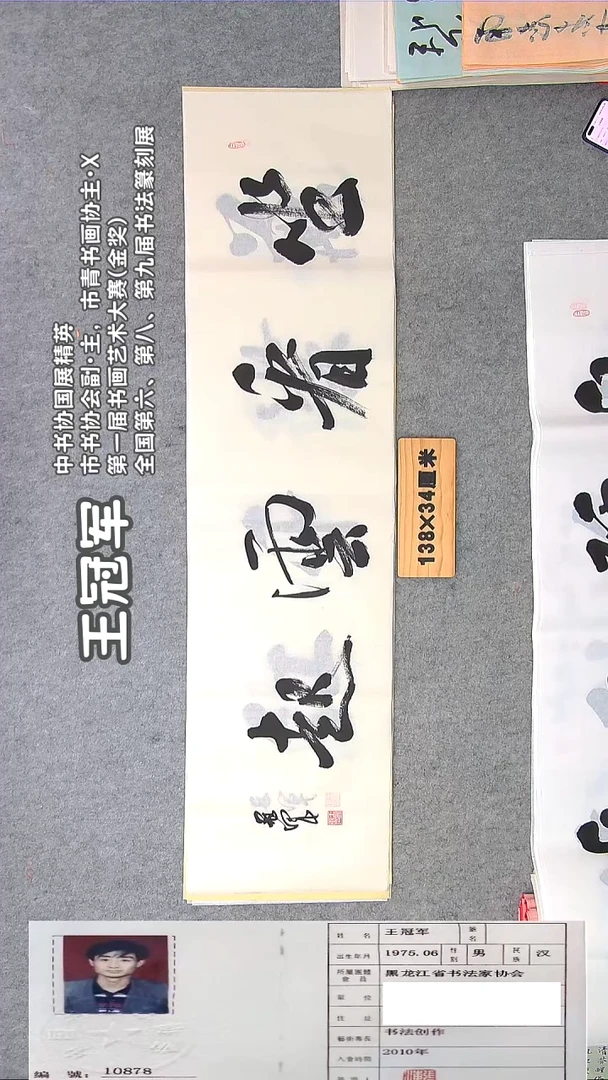 中书协国展精英
市书协会副·主，市青书画协主·X
第一届书画艺术大赛(金奖)
全国第六、第八、第九届书法篆刻展
王冠军
坐看雲起
138×34厘米
姓名 王冠军 筆名
出生年月 1975.06 性别 男 民族 汉
所屬團體會員 黑龙江省书法家协会
單位
住址
藝術專長 书法创作
入會時間 2010年
編號： 10878